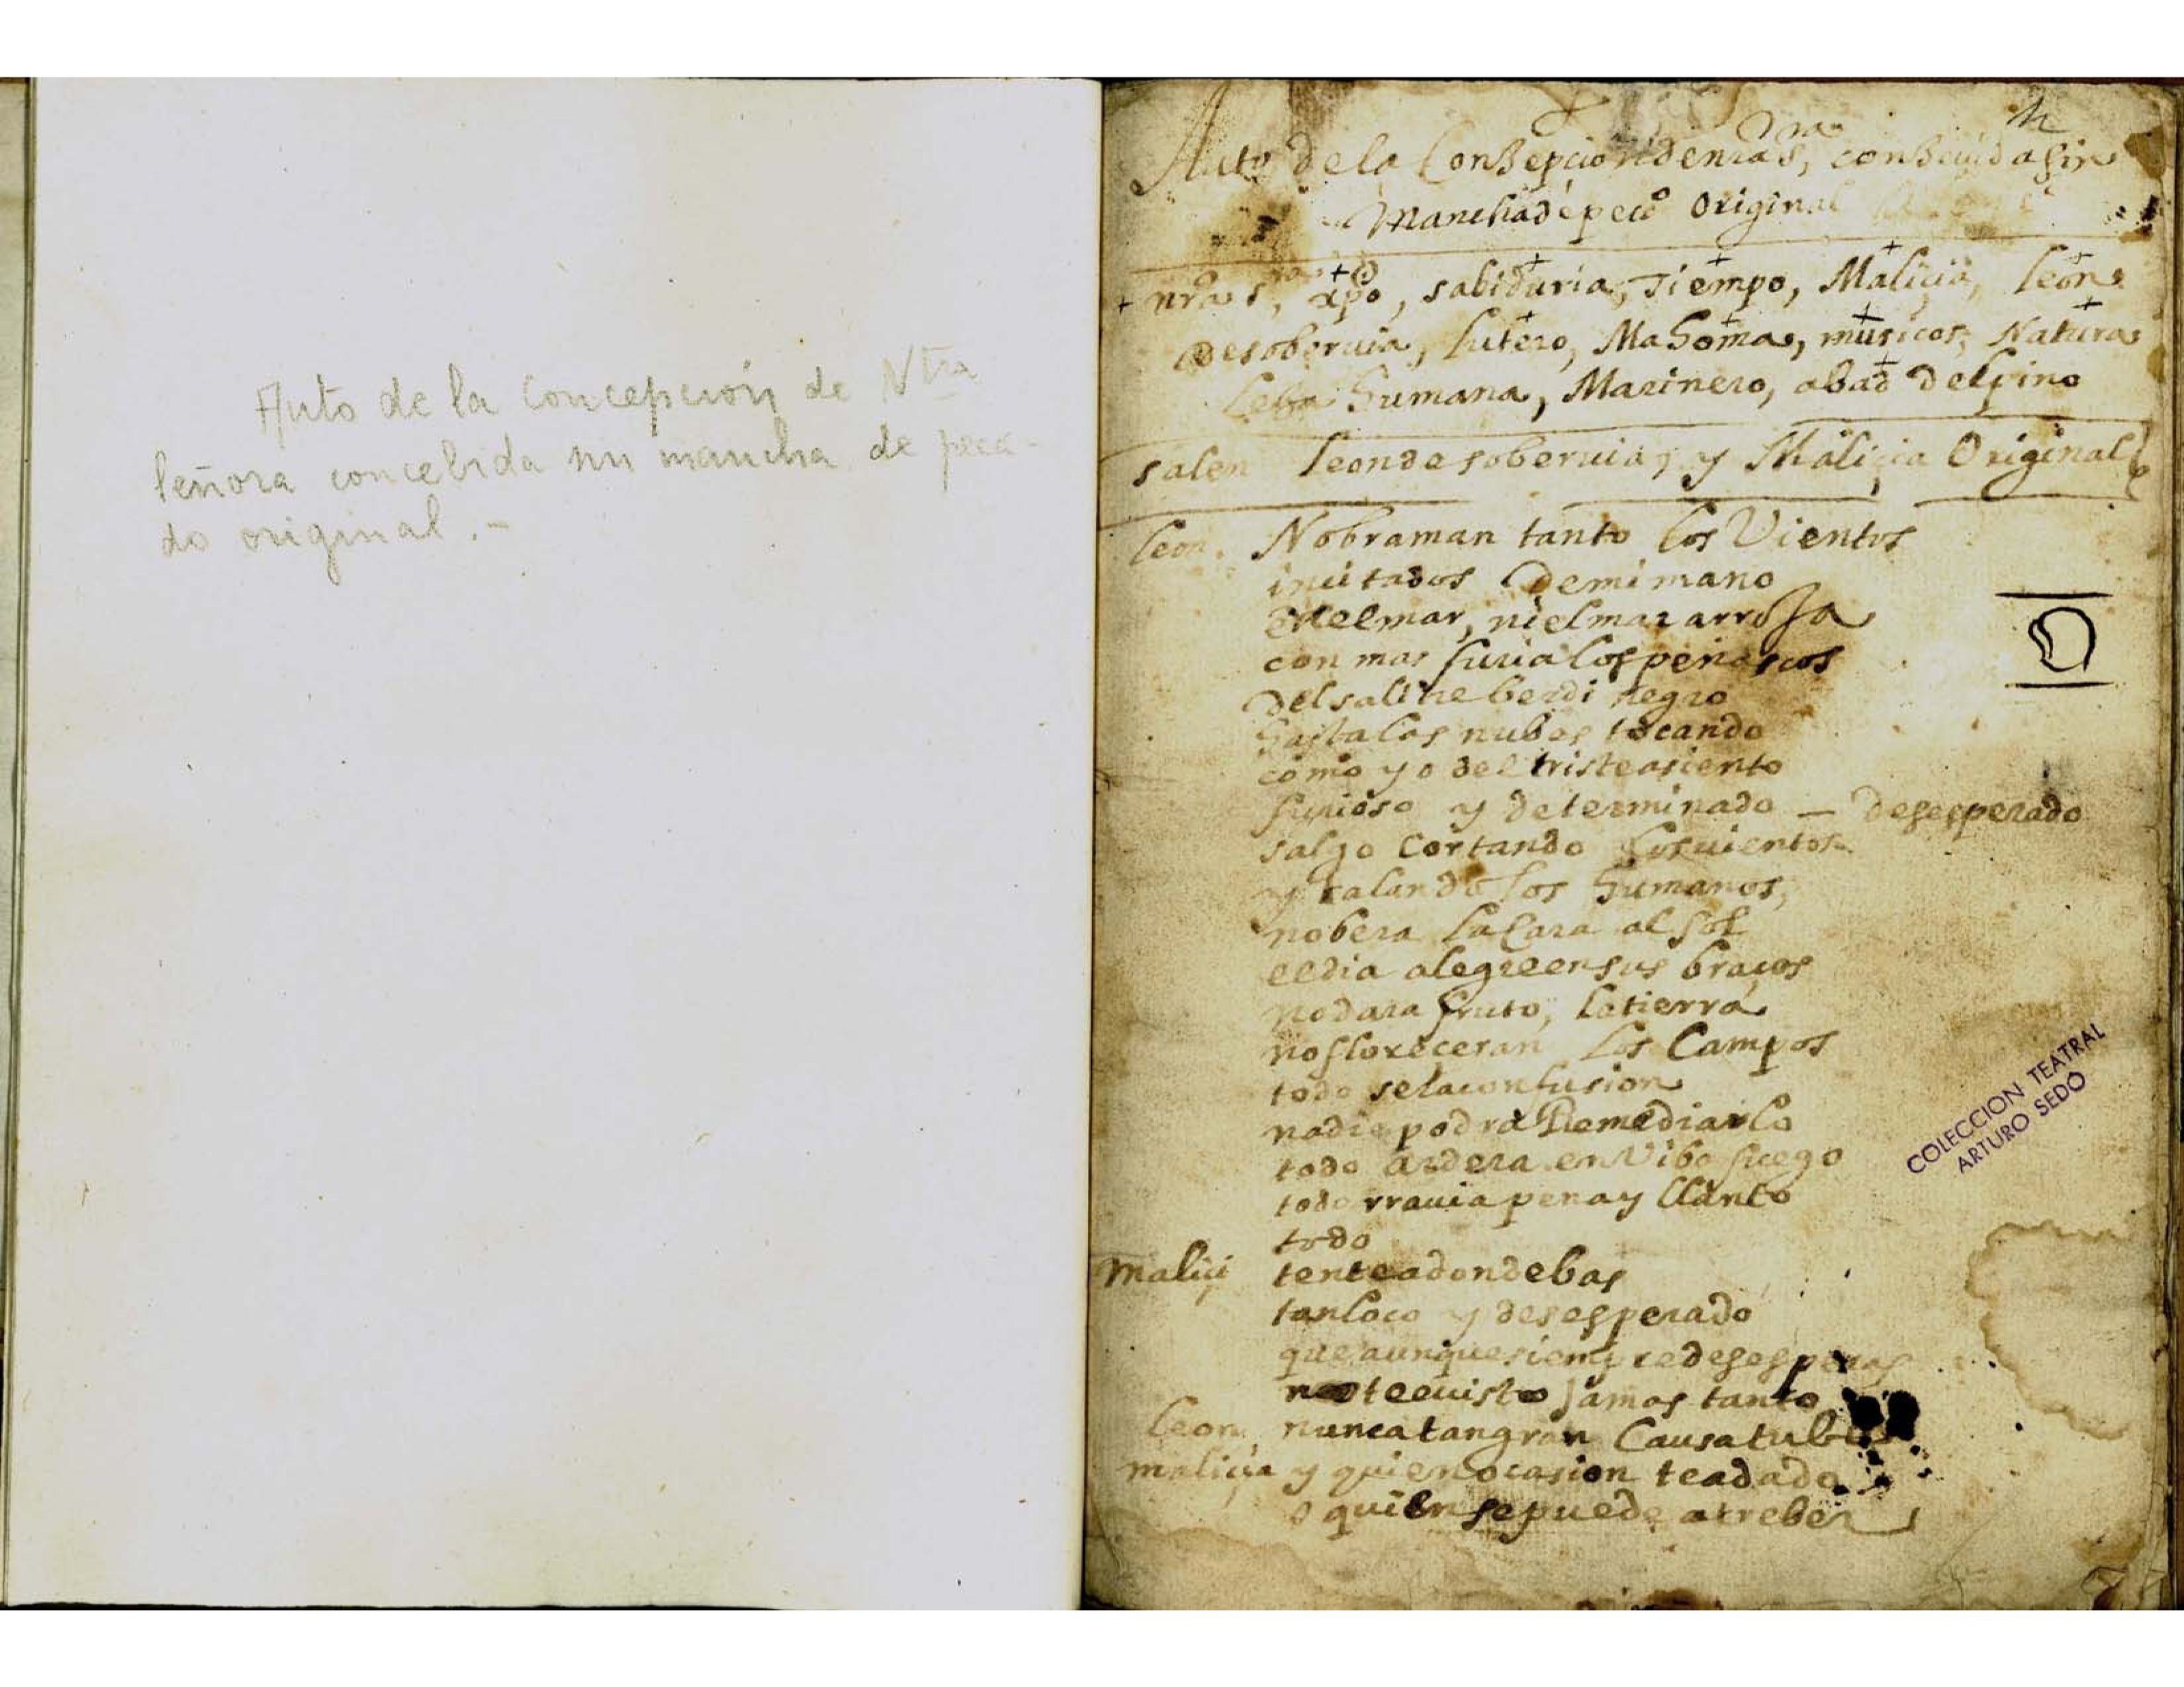 Auto de la Concepción de Ntra
Señora concebida sin mancha de peca-
do original.-
Auto de la Consepcion de nra Sra, consevida sin
Mancha de pecdo Original
nra sra, xpo, sabiduria, Tiempo, Maliçia, leon
de sobervia, lutero, Mahoma, musicos, Natura
leça humana, Marinero, abad delfino
salen leon de sobervia, y Maliçia Original
leon. No braman tanto los Vientos
incitados de mi mano
en el mar, ni el mar arroja
con mas furia los peñascos
del salitre berdi negro
hasta las nubes tocando
como yo del triste asiento
furioso y determinado — desesperado
salgo Cortando los vientos
y talando los humanos,
no bera la Cara al sol
el dia alegre en sus braços
no dara fruto, la tierra
no floreceran los Campos
todo sera confusion
nadie podra Remediarlo
todo ardera en Vibo fuego
todo rravia pena y llanto
todo
maliçi tente adonde bas
tan loco y desesperado
que aunque siempre desesperas
no te e visto Jamas tanto
leon nunca tan gran Causa tube
maliçia y quien ocasion te a dado
o quien se puede atreber
COLECCION TEATRAL
ARTURO SEDÓ